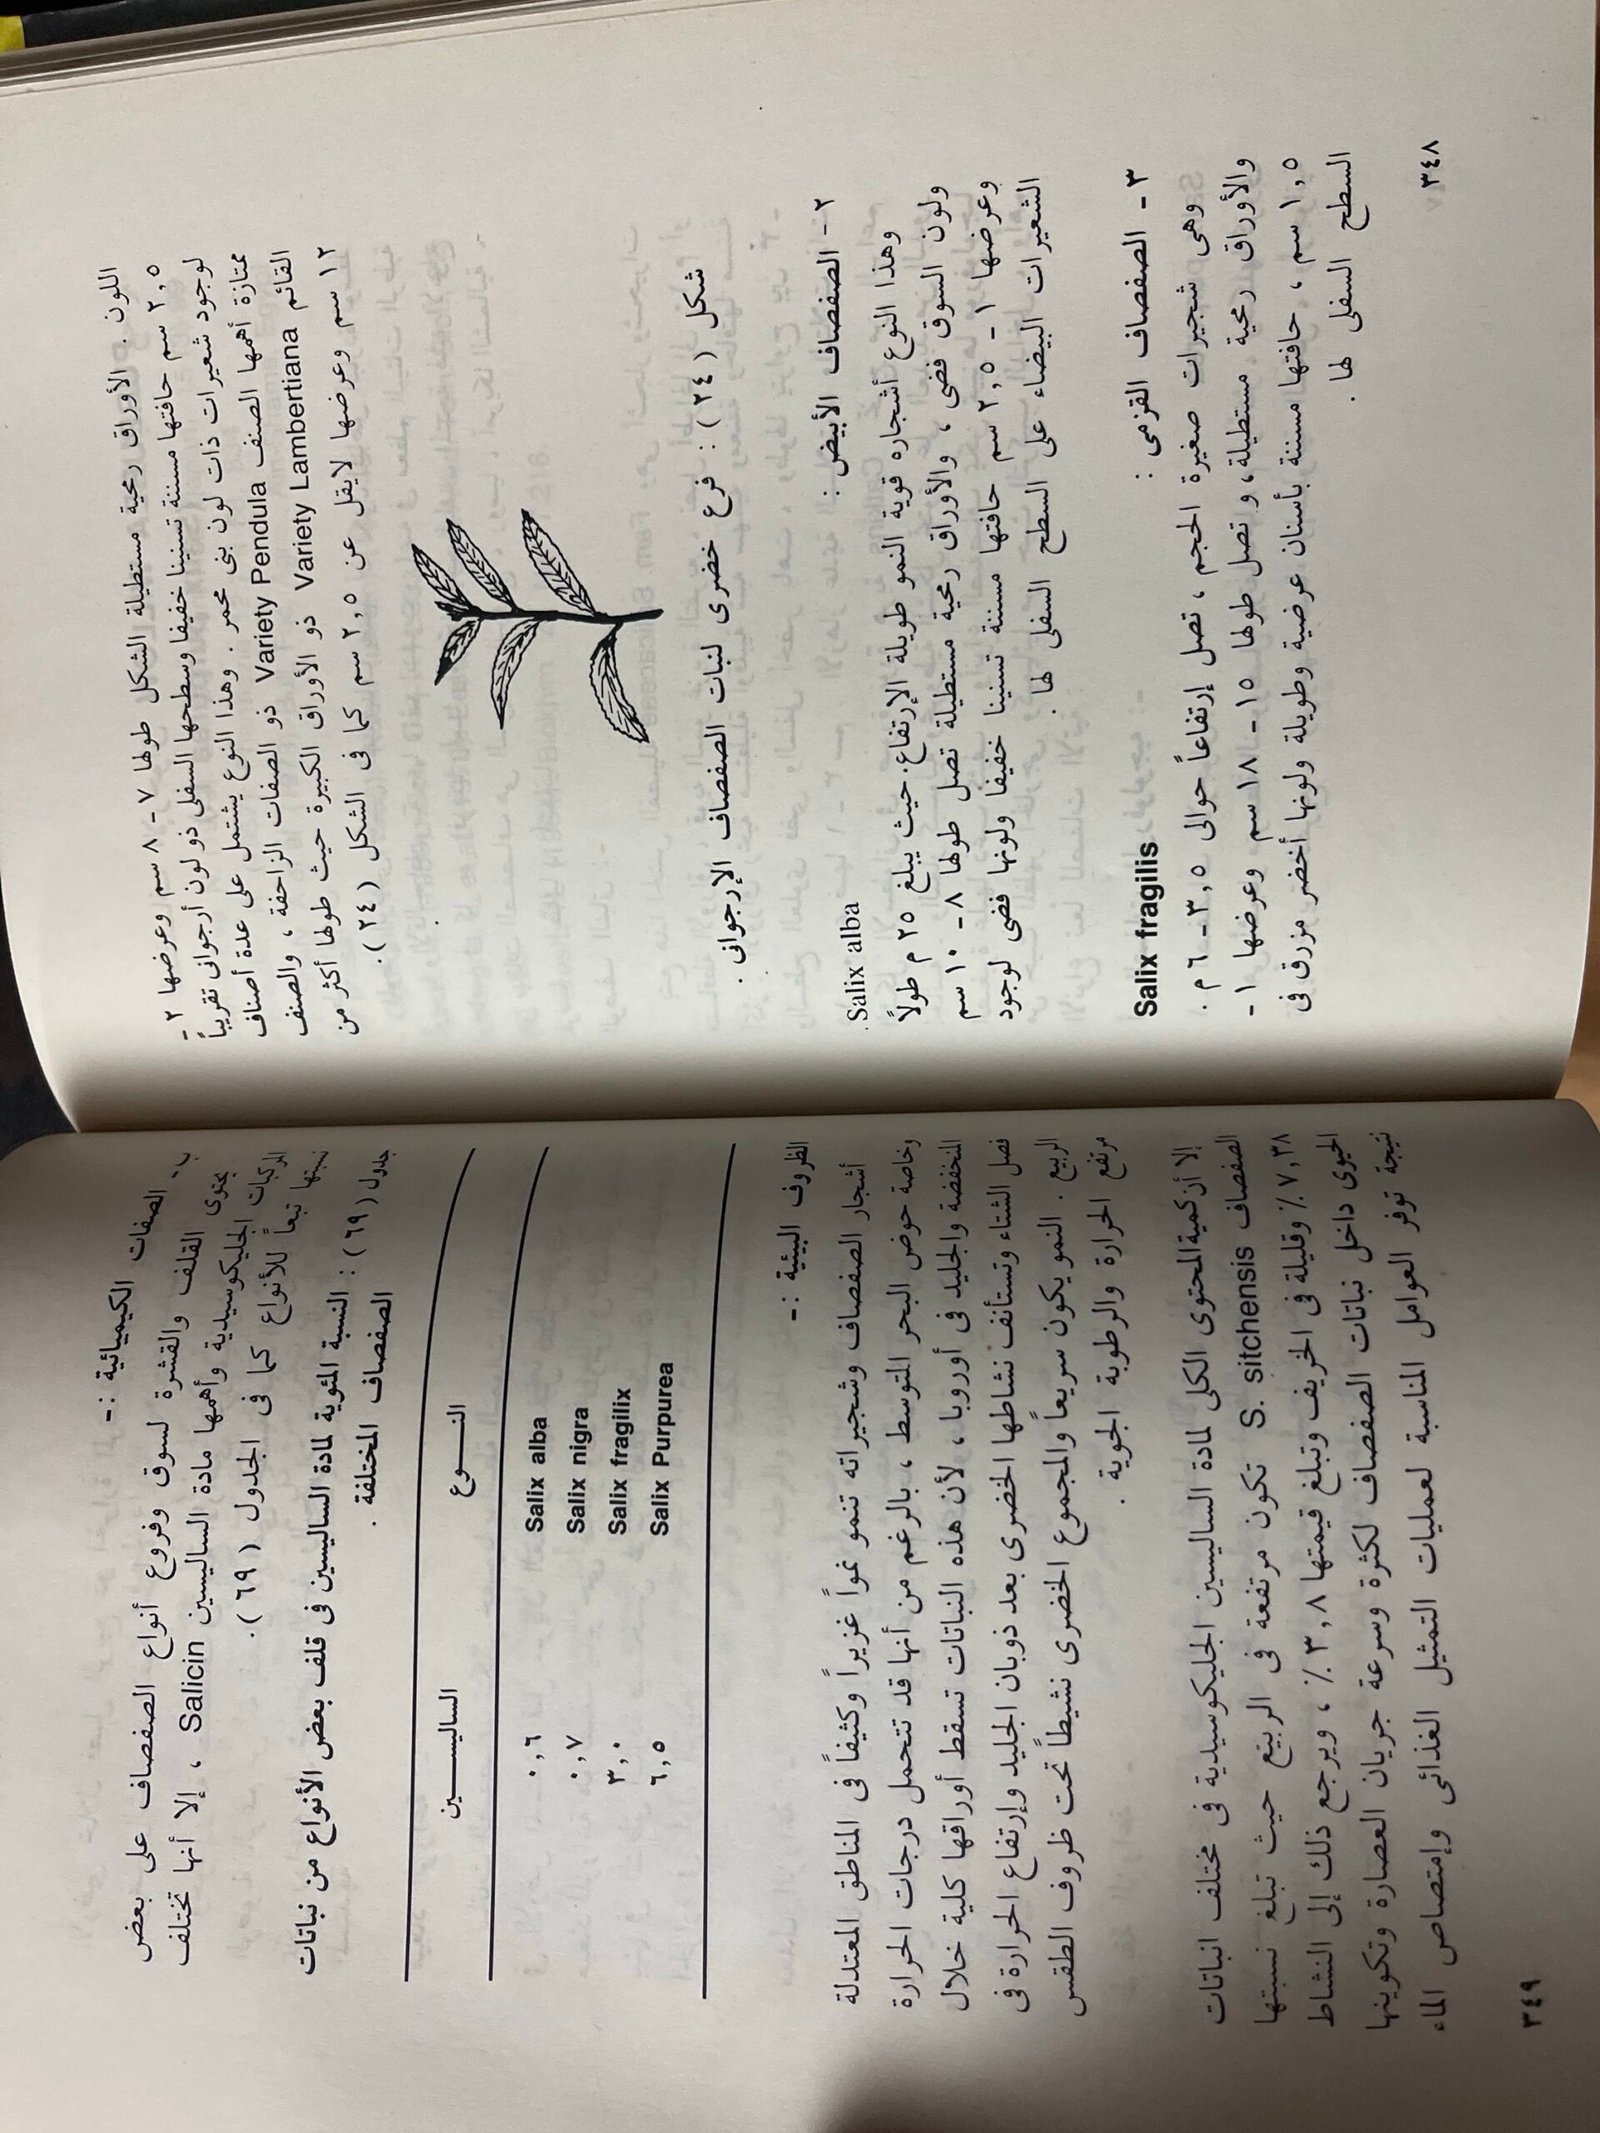 اللون . الأوراق رمحية مستطيلة الشكل طولها ٧ - ٨ سم وعرضها ٢ -
٢,٥ سم حافتها مسننة تسنينا خفيفا وسطحها السفلى ذو لون أرجوانى تقريباً
لوجود شعيرات ذات لون بنى محمر . وهذا النوع يشتمل على عدة أصناف
ممتازة أهمها الصنف Variety Pendula ذو الصفات الزاحفة ، والصنف
القائم Variety Lambertiana ذو الأوراق الكبيرة حيث طولها أكثر من
١٢ سم وعرضها لايقل عن ٢,٥ سم كما فى الشكل (٢٤).
شكل (٢٤) : فرع خضرى لنبات الصفصاف الإرجوانى .
٢ - الصفصاف الأبيض : Salix alba.
وهذا النوع أشجاره قوية النمو طويلة الإرتفاع. حيث يبلغ ٢٥ م طولاً
ولون السوق فضى ، والأوراق رمحية مستطيلة تصل طولها ٨ - ١٠ سم
وعرضها ١ - ٢,٥ سم حافتها مسننة تسنينا خفيفا ولونها فضى لوجود
الشعيرات البيضاء على السطح السفلى لها .
٣ - الصفصاف القزمى : Salix fragilis
وهى شجيرات صغيرة الحجم ، تصل إرتفاعاً حوالى ٣,٥ - ٦ م .
والأوراق رمحية مستطيلة، و تصل طولها ١٥ - ١٨ سم وعرضها ١ -
١,٥ سم ، حافتها مسننة بأسنان عرضية وطويلة ولونها أخضر مزرق فى
السطح السفلى لها .
٣٤٨
ب - الصفات الكيميائية : -
يحتوى القلف والقشرة لسوق وفروع أنواع الصفصاف على بعض
المركبات الجليكوسيدية وأهمها مادة الساليسين Salicin ، إلا أنها تختلف
نسبتها تبعاً للأنواع كما فى الجدول (٦٩).
جدول (٦٩) : النسبة المئوية لمادة الساليسين فى قلف بعض الأنواع من نباتات
الصفصاف المختلفة .
النــــوع الساليســــين
Salix alba ٠,٦
Salix nigra ٠,٧
Salix fragilix ٣,٠
Salix Purpurea ٦,٥
الظروف البيئية : -
أشجار الصفصاف وشجيراته تنمو نمواً غزيراً وكثيفاً فى المناطق المعتدلة
وخاصة حوض البحر المتوسط ، بالرغم من أنها قد تتحمل درجات الحرارة
المنخفضة والجليد فى أوروبا ، لأن هذه النباتات تسقط أوراقها كلية خلال
فصل الشتاء وتستأنف نشاطها الخضرى بعد ذوبان الجليد وإرتفاع الحرارة فى
الربيع . النمو يكون سريعاً والمجموع الخضرى نشيطاً تحت ظروف الطقس
مرتفع الحرارة والرطوبة الجوية .
إلا أن كمية المحتوى الكلى لمادة الساليسين الجليكوسيدية فى مختلف انباتات
الصفصاف S. sitchensis تكون مرتفعة فى الربيع حيث تبلغ نسبتها
٧,٣٨ ٪ وقليلة فى الخريف وتبلغ قيمتها ٣,٨ ٪ ، ويرجع ذلك إلى النشاط
الحيوى داخل نباتات الصفصاف لكثرة وسرعة جريان العصارة وتكوينها
نتيجة توفر العوامل المناسبة لعمليات التمثيل الغذائى وإمتصاص الماء
٣٤٩